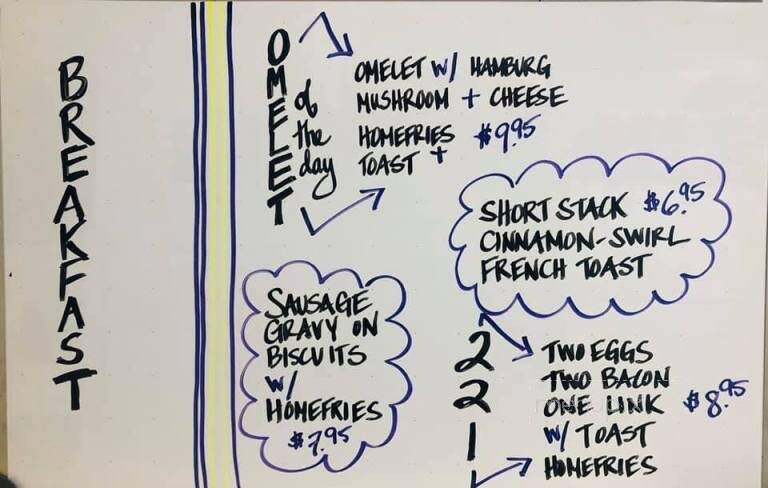 BREAKFAST
OMELET
of
the
day
OMELET W/ HAMBURG
MUSHROOM + CHEESE
HOMEFRIES $9.95
TOAST +
SHORT STACK $6.95
CINNAMON-SWIRL
FRENCH TOAST
SAUSAGE
GRAVY ON
BISCUITS
W/
HOMEFRIES
$7.95
2
2
1
TWO EGGS
TWO BACON
ONE LINK $8.95
W/ TOAST
HOMEFRIES